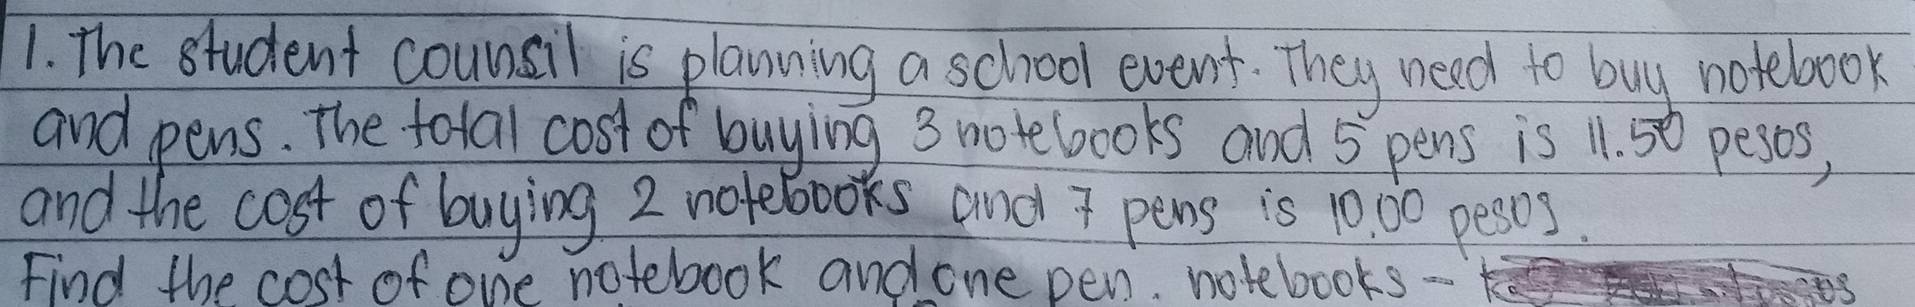 1. The student counsil is planning a school event. They need to buy notebook
and pens. The total cost of buying 3 notebooks and 5 pens is 11.50 pesos,
and the cost of buying 2 notebooks and 7 pens is 10.00 pesos.
Find the cost of one notebook and one pen. notebooks -